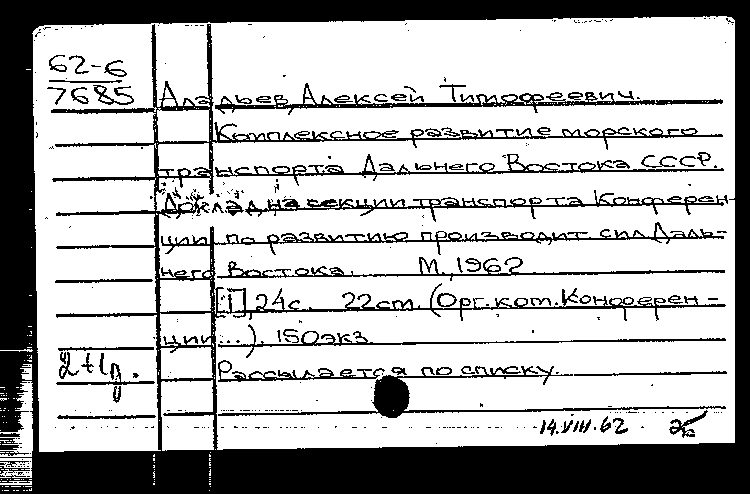 62-6
7685
Аладьев, Алексей Тимофеевич.
Комплексное развитие морского
транспорта Дальнего Востока СССР.
Доклад на секции транспорта Конферен-
ции по развитию производит. сил Даль-
него Востока. М., 1962
[1], 24 с. 22 см. (Орг. ком. Конферен-
ции...). 150 экз.
Рассылается по списку.
14.VIII.62